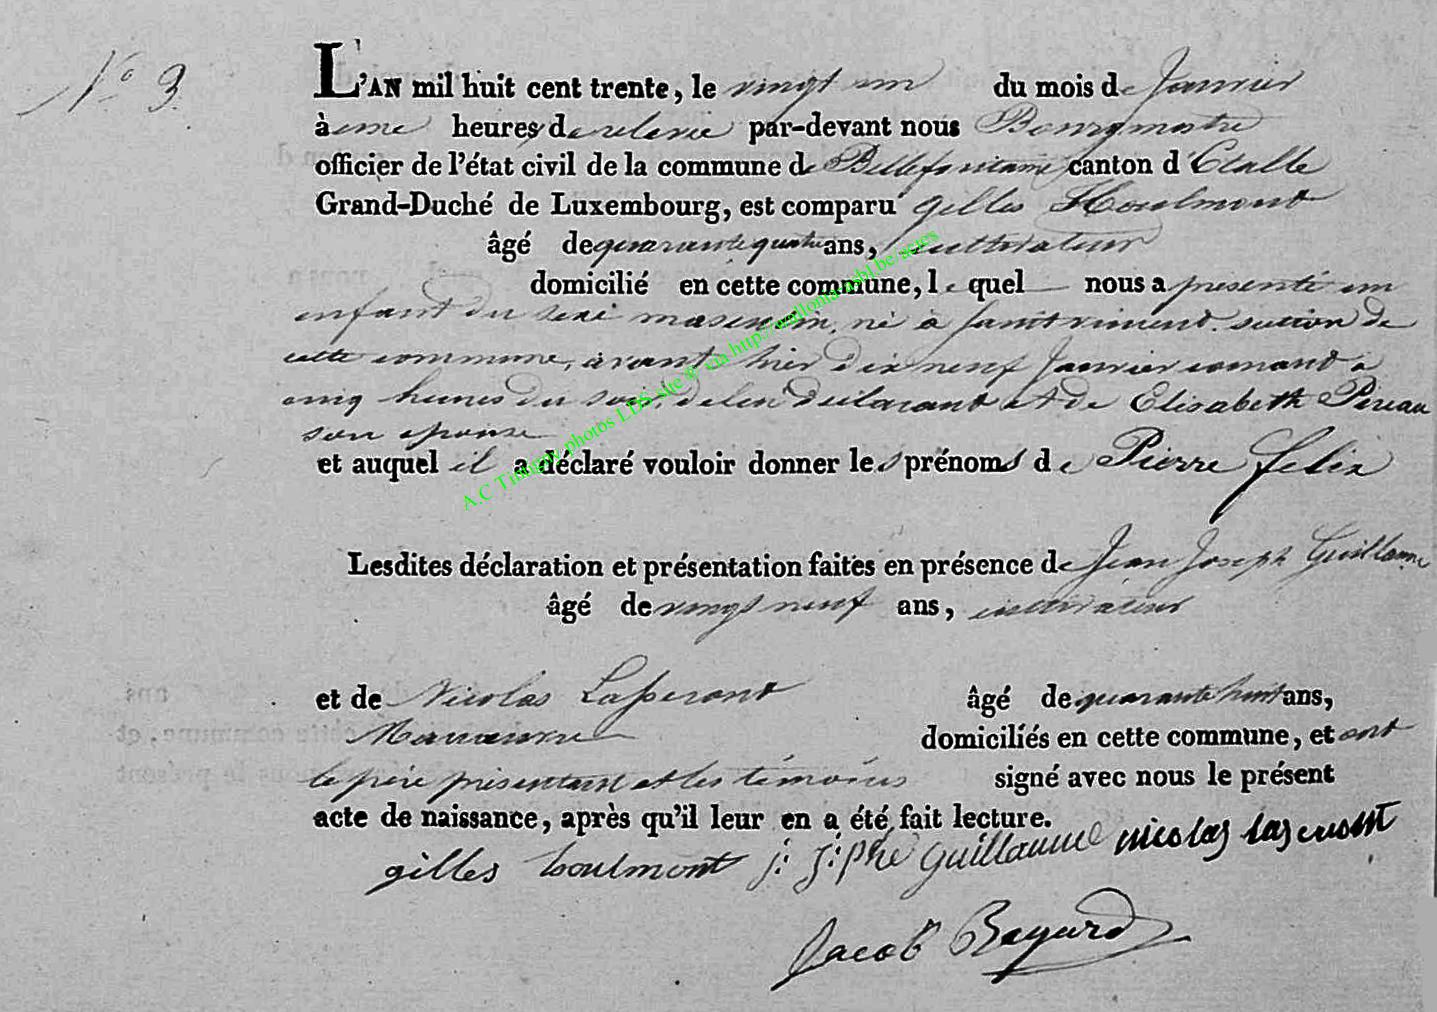 N° 3.
L'AN mil huit cent trente, le vingt un du mois de Janvier
à une heures de relevée par-devant nous Bourgmestre
officier de l'état civil de la commune de Bellefontaine canton d'Etalle
Grand-Duché de Luxembourg, est comparu gilles Houlmont
âgé de quarante quatre ans, cultivateur
domicilié en cette commune, le quel nous a présenté un
enfant du sexe masculin, né à section de
cette commune, avant hier dix neuf Janvier courant à
cinq heures du soir, de lui déclarant et de Elisabeth
son épouse
et auquel il a déclaré vouloir donner les prénoms de Pierre felix
Lesdites déclaration et présentation faites en présence de Jean Joseph Guillaume
âgé de vingt neuf ans, cultivateur
et de Nicolas âgé de quarante huit ans,
Manœuvre domiciliés en cette commune, et ont
le père présentant et les témoins signé avec nous le présent
acte de naissance, après qu'il leur en a été fait lecture.
gilles houlmont j: j:phe guillaume nicolas
Jacob
A.C Tintigny photos LDS site & via http://wallonia-asbl.be/actes